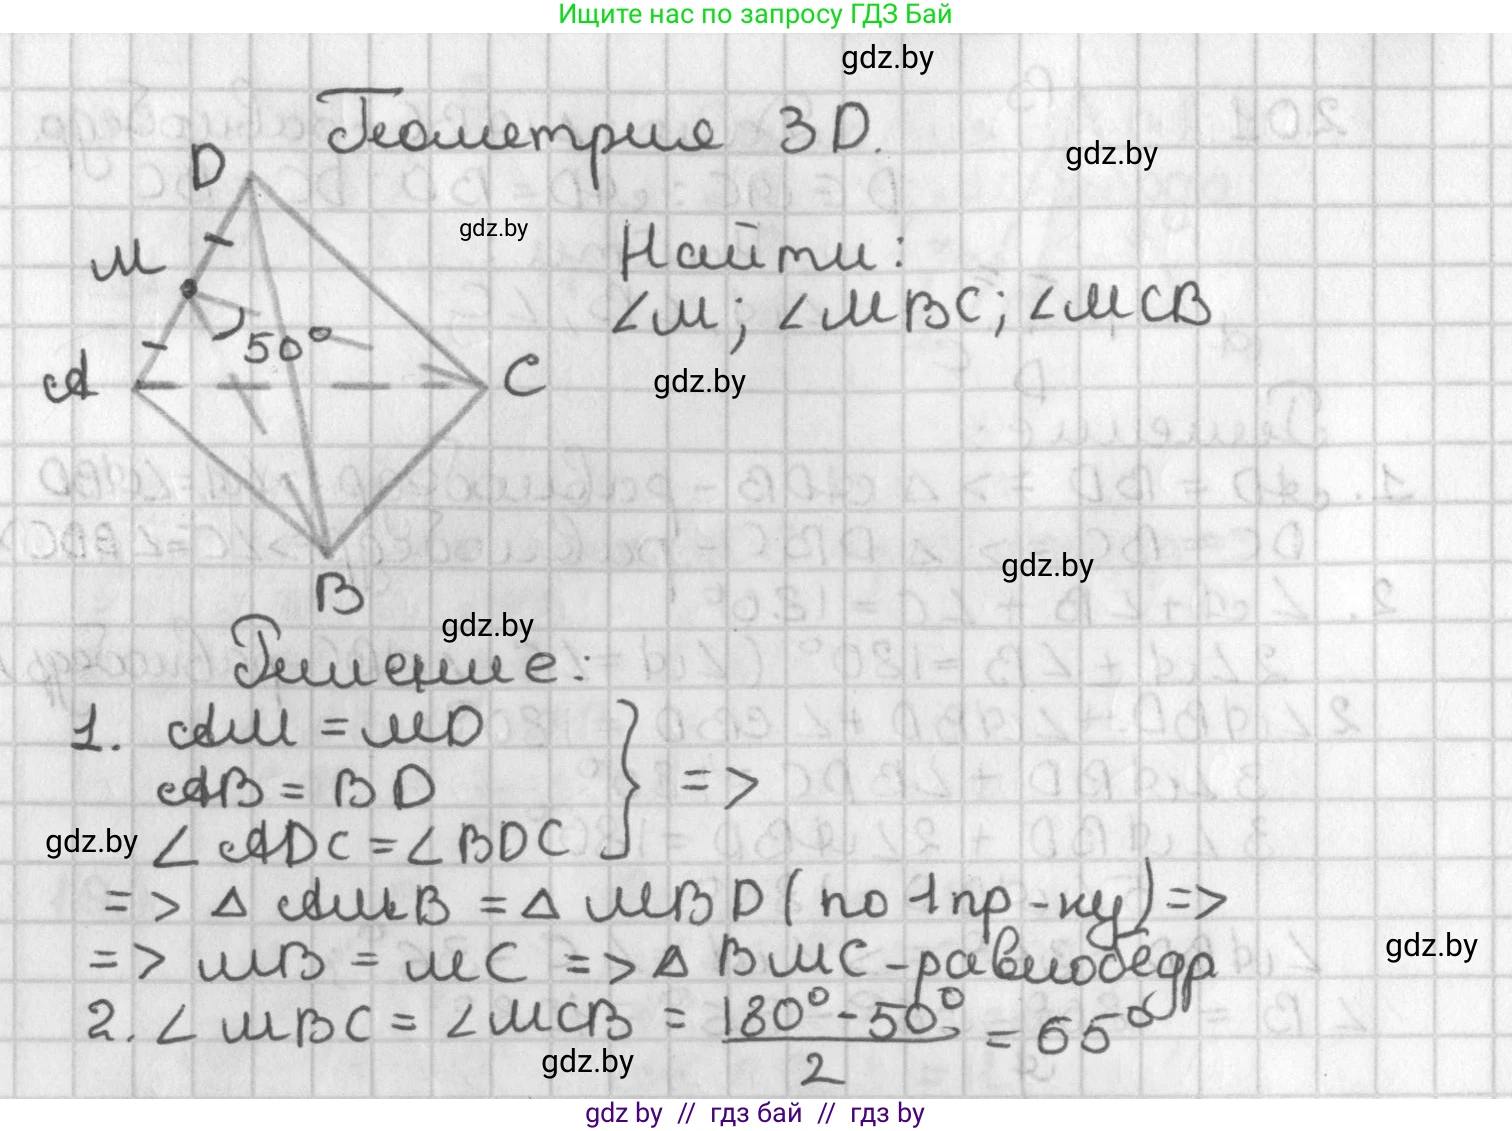 Ищите нас по запросу ГДЗ Бай
gdz.by
Геометрия 3D.
gdz.by
D
gdz.by
Найти:
M
∠M; ∠MBC; ∠MCB
50°
A
C
gdz.by
gdz.by
B
gdz.by
Решение:
1. AM = MD
AB = BD
=>
gdz.by
∠ADC = ∠BDC
=> △ AMB = △ MBD (по 1 пр-ку) =>
=> MB = MC => △ BMC - равнобедр
gdz.by
2. ∠MBC = ∠MCB = 180° - 50° / 2 = 65°
gdz.by
gdz by // гдз бай // гдз by